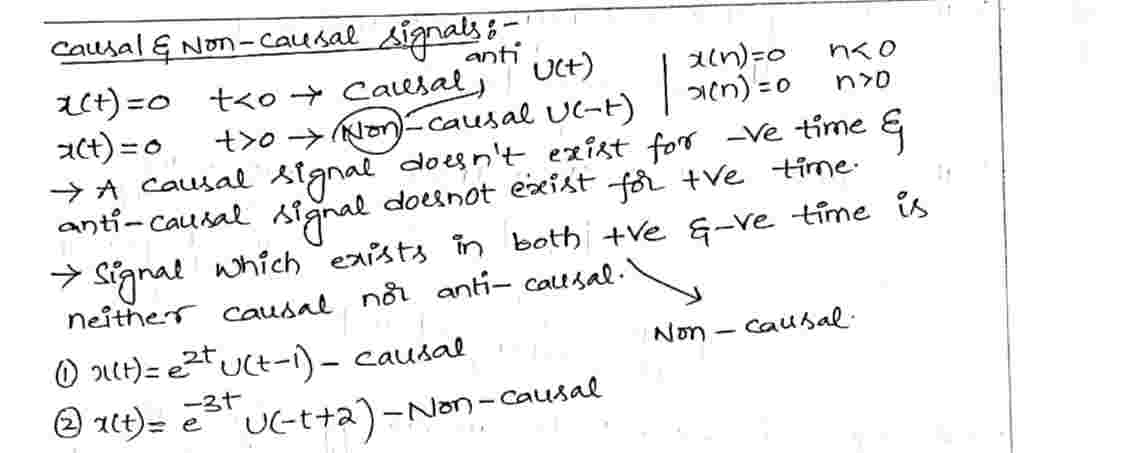 Causal & Non-causal signals:-
x(t)=0 t<0 → Causal, U(t) | x(n)=0 n<0
anti
x(t)=0 t>0 → Non-causal U(-t) | x(n)=0 n>0
→ A causal signal doesn't exist for -ve time &
anti-causal signal doesnot exist for +ve time.
→ Signal which exists in both +ve & -ve time is
neither causal nor anti-causal.
Non-causal.
① x(t)=e^{2t} U(t-1) - causal
② x(t)= e^{-3t} U(-t+2) - Non-causal